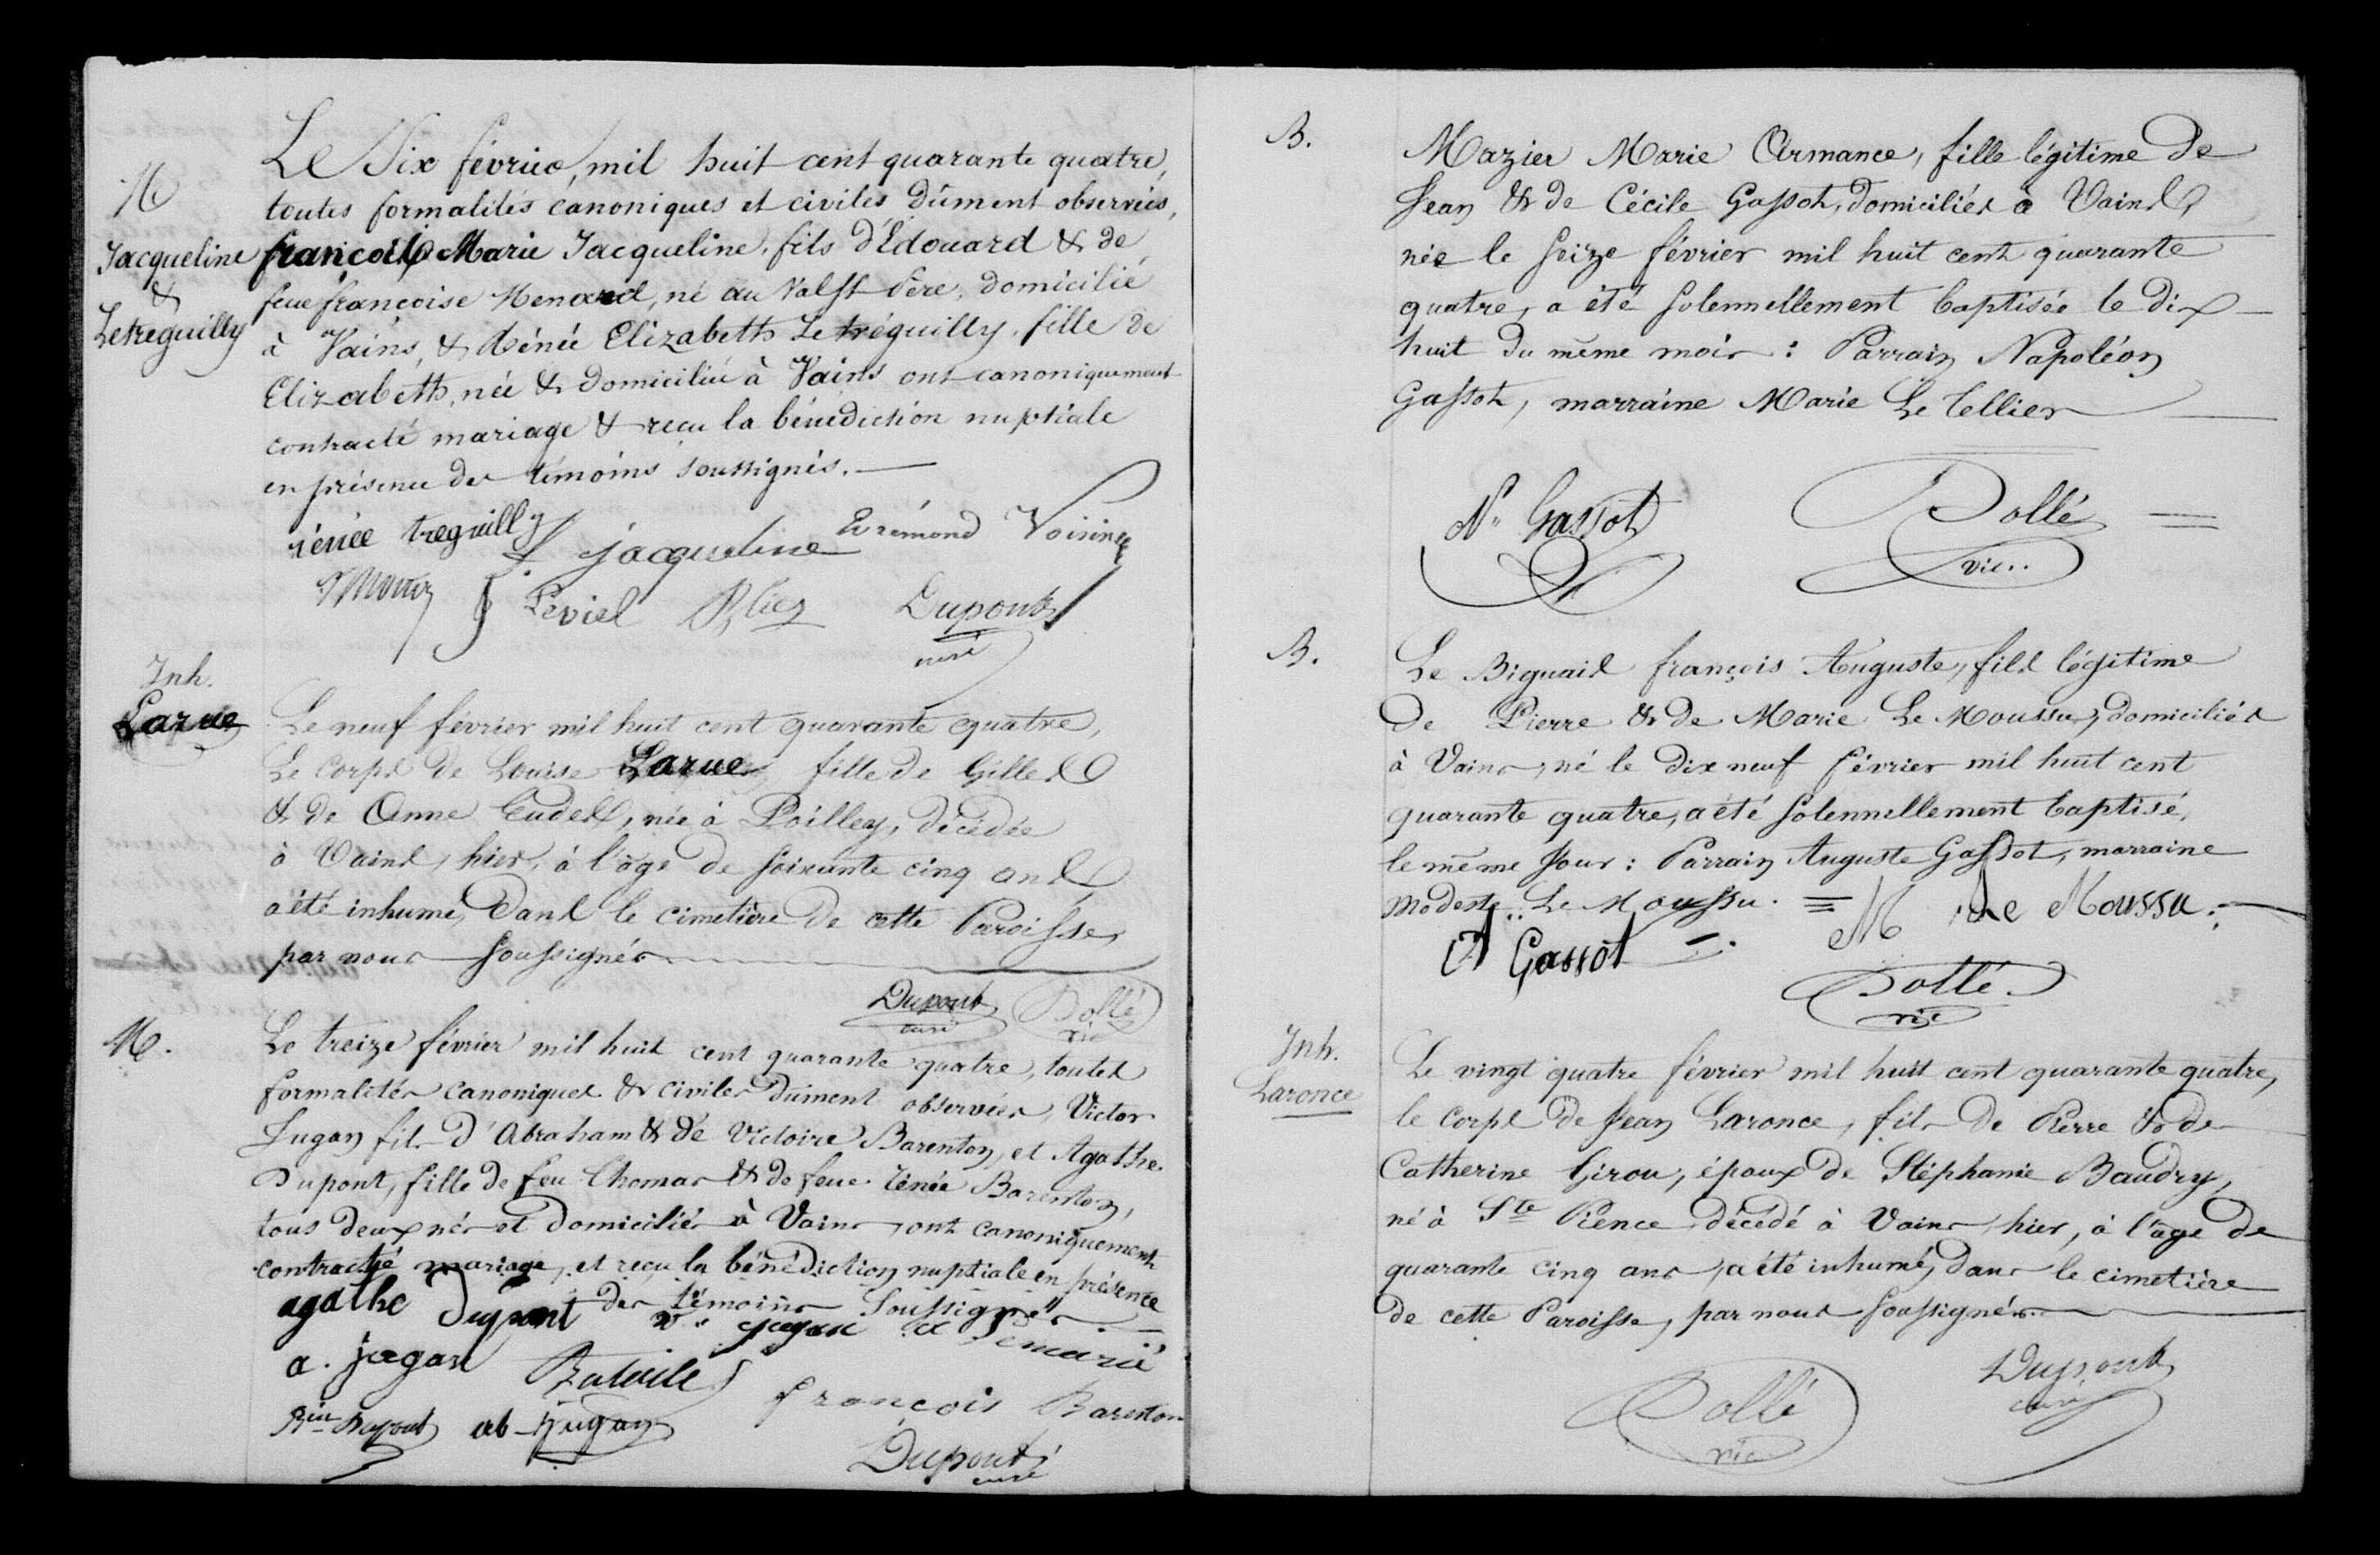 M
Jacqueline
&
Letreguilly
Le Six février, mil huit cent quarante quatre,
toutes formalités canoniques et civiles dûment observées,
françois Marie Jacqueline, fils d'Edouard & de
feue françoise Menard, né au Val St Père, domicilié
à Vains, & Rénée Elizabeth Letréguilly, fille de
Elizabeth, née & domiciliée à Vains ont canoniquement
contracté mariage & reçu la bénédiction nuptiale
en présence des témoins soussignés.
rénée treguilly
f. jacqueline
Evrémond Voisin
Leviel
Dupont
curé
Inh.
Larue
Le neuf février mil huit cent quarante quatre,
Le corps de Louise Larue, fille de Gilles
& de Anne Eudes, née à Poilley, décédée
à Vains, hier, à l'âge de soixante cinq ans
a été inhumé, dans le cimetière de cette Paroisse,
par nous soussignés
Dupont
curé
Dollé
vic
M.
Le treize février mil huit cent quarante quatre, toutes
formalités canoniques & civiles dûment observées, Victor
Jugan fils d'Abraham & de Victoire Barenton, et Agathe
Dupont, fille de feu Thomas & de feue rénée Barenton,
tous deux nés et domiciliés à Vains, ont canoniquement
contracté mariage, et reçu la bénédiction nuptiale en présence
des témoins soussignés
agathe Dupont
v. jugan
a Lemarié
a. jugan
Bataille
françois Barenton
Dupont
ab Jugan
Dupont
curé
B.
Mazier Marie Armance, fille légitime de
Jean & de Cécile Gassot, domiciliés à Vains,
née le seize février mil huit cent quarante
quatre, a été solennellement baptisée le dix
huit du même mois : Parrain Napoléon
Gassot, marraine Marie Le Tellier
N. Gassot
Dollé
vic..
B.
Le Biguais françois Auguste, fils légitime
de Pierre & de Marie Le Moussu, domiciliés
à Vains, né le dix neuf février mil huit cent
quarante quatre, a été solennellement baptisé,
le même jour : Parrain Auguste Gassot, marraine
modeste Le Moussu.
M Le Moussu.
A Gassot
Dollé
vic
Inh.
Laronce
Le vingt quatre février mil huit cent quarante quatre,
le corps de Jean Laronce, fils de Pierre & de
Catherine Girou, époux de Stéphanie Baudry,
né à Ste Pience, décédé à Vains, hier, à l'âge de
quarante cinq ans, a été inhumé, dans le cimetière
de cette Paroisse, par nous soussignés
Dupont
curé
Dollé
vic